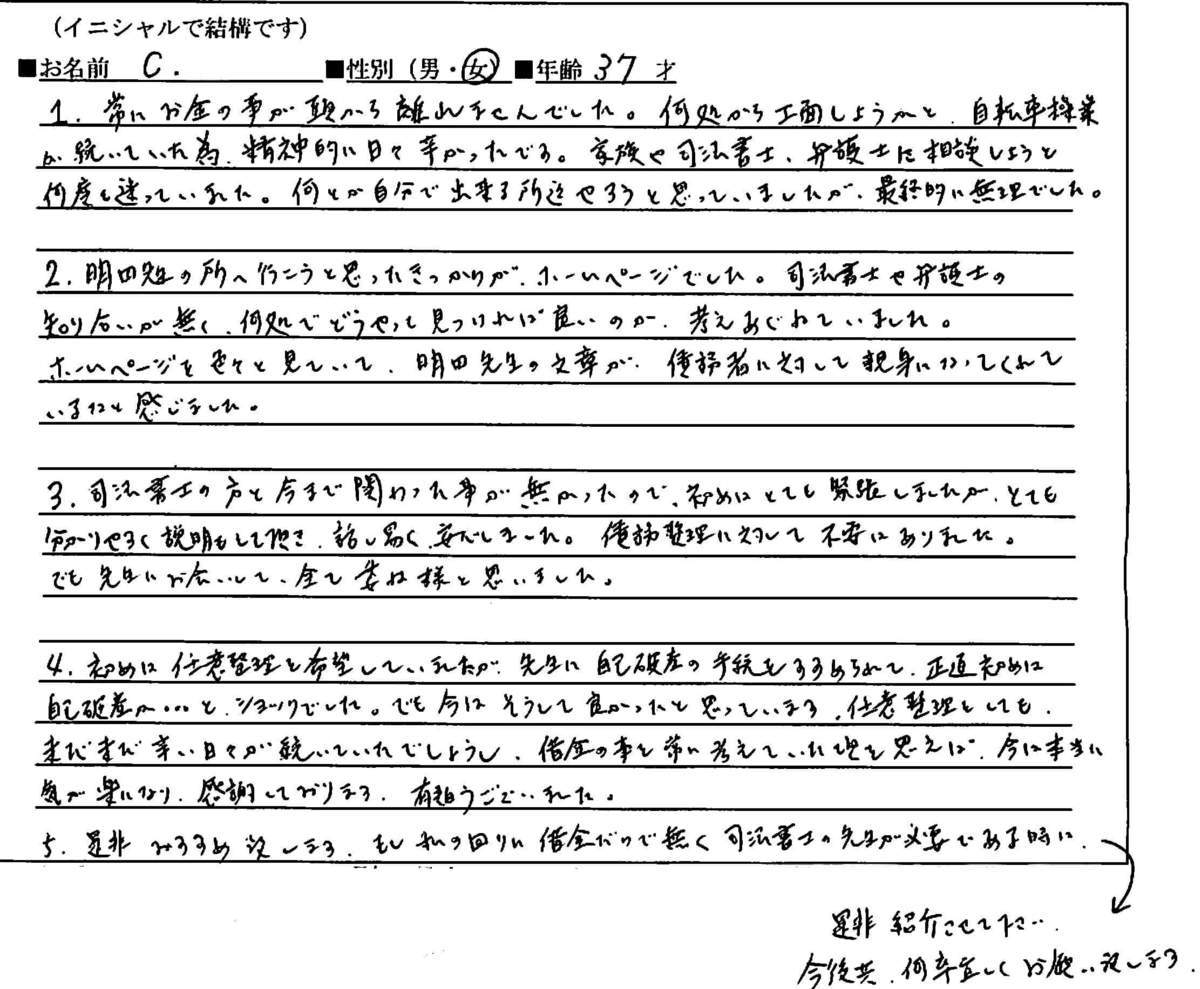 (イニシャルで結構です)
■お名前 C. ■性別 (男・女) ■年齢 37 才
1. 常にお金の事が頭から離れませんでした。何処から工面しようかと、自転車操業
が続いていた為、精神的に日々辛かったです。家族や司法書士、弁護士に相談しようと
何度も迷っていました。何とか自分で出来る所迄やろうと思っていましたが、最終的に無理でした。
2. 明田先生の所へ行こうと思ったきっかけが、ホームページでした。司法書士や弁護士の
知り合いが無く、何処でどうやって見つければ良いのか、考えあぐねていました。
ホームページを色々と見ていて、明田先生の文章が、債務者に対して親身になってくれて
いるなと感じました。
3. 司法書士の方と今まで関わった事が無かったので、初めはとても緊張しましたが、とても
分かりやすく説明もして頂き、話し易く、安心しました。債務整理に対して不安はありました。
でも先生にお会いして、全て委ね様と思いました。
4. 初めは任意整理を希望していましたが、先生に自己破産の手続をすすめられて、正直初めは
自己破産か...と、ショックでした。でも今はそうして良かったと思っています。任意整理としても、
まだまだ辛い日々が続いていたでしょうし、借金の事を常に考えていた頃を思えば、今は本当に
気が楽になり、感謝しております。有難うございました。
5. 是非おすすめ致します。もし私の回りに借金だけで無く司法書士の先生が必要である時は、
是非 紹介させて下さい。
今後共、何卒宜しくお願い致します。